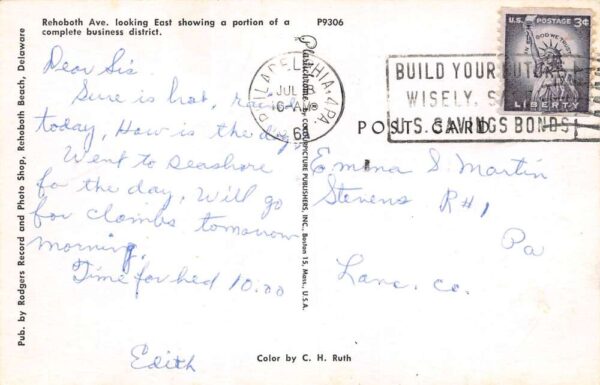 Rehoboth Ave. looking East showing a portion of a
complete business district.
P9306
Pub. by Rodgers Record and Photo Shop, Rehoboth Beach, Delaware
Dear Sis.
Sure is hot, rained
today, How is the dog
Went to Seashore
fo the day, Will go
for clombs tomorrow
morning,
Time for bed 10:00
Edith
Plastichrome by COLOURPICTURE PUBLISHERS, INC., Boston 15, Mass., U.S.A.
PHILADELPHIA, PA.
JUL 8
6-AM
U.S. POSTAGE 3¢
IN GOD WE TRUST
LIBERTY
BUILD YOUR FUTURE
WISELY,
U.S. SAVINGS BONDS
POST CARD
Emma S. Martin
Stevens R#1
Pa
Lanc. Co.
Color by C. H. Ruth